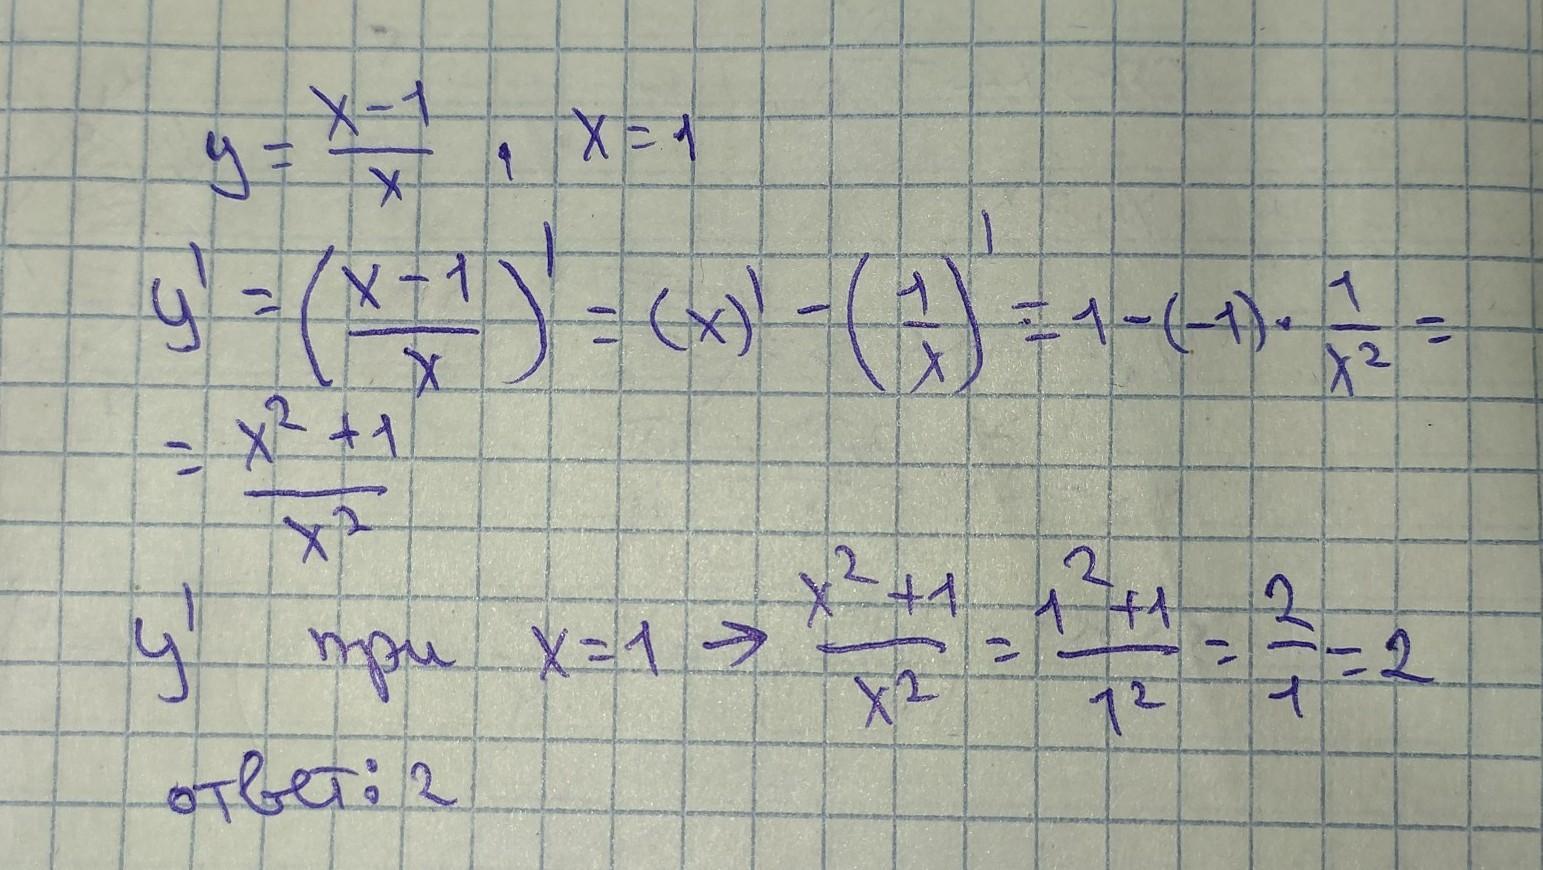 y = (x-1)/x , x = 1
y' = ((x-1)/x)' = (x)' - (1/x)' = 1 - (-1) · 1/x² =
= (x² + 1)/x²
y' при x = 1 → (x² + 1)/x² = (1² + 1)/1² = 2/1 = 2
ответ: 2